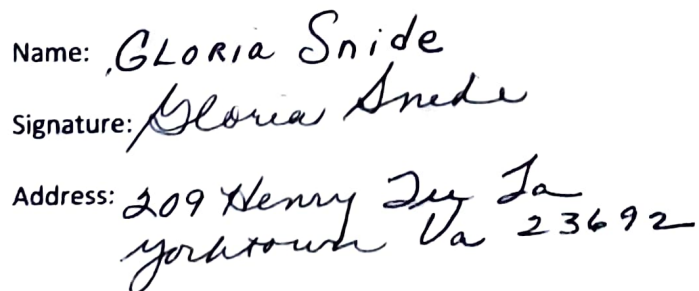 Name: GLORIA Snide
Signature: Gloria Snide
Address: 209 Henry Lee La
Yorktown Va 23692